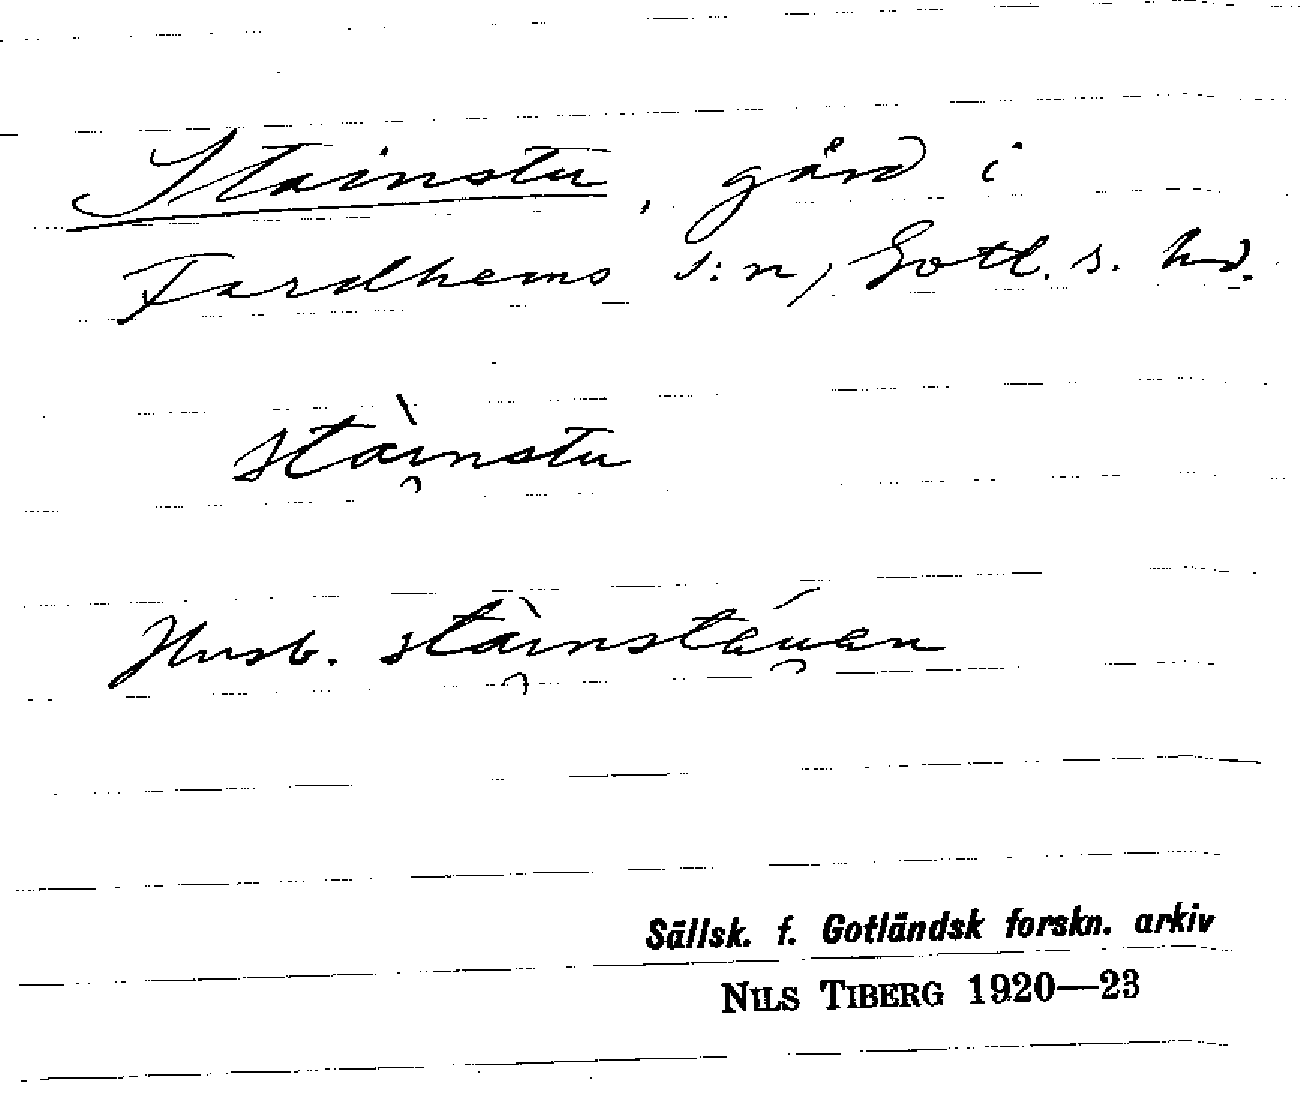 Stainstu, gård i
Fardhems s:n, Gotl. s. hd.
stàı̯nstu
Husb. stàı̯nstáu̯an
Sällsk. f. Gotländsk forskn. arkiv
NILS TIBERG 1920—23